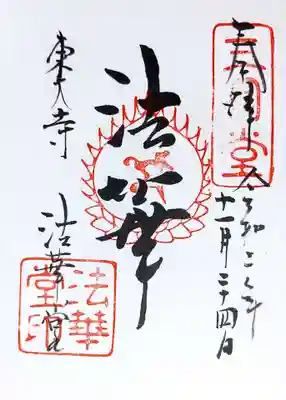 奉拝
令和二年
十一月二十四日
法華
東大寺
法華堂
法華
堂印